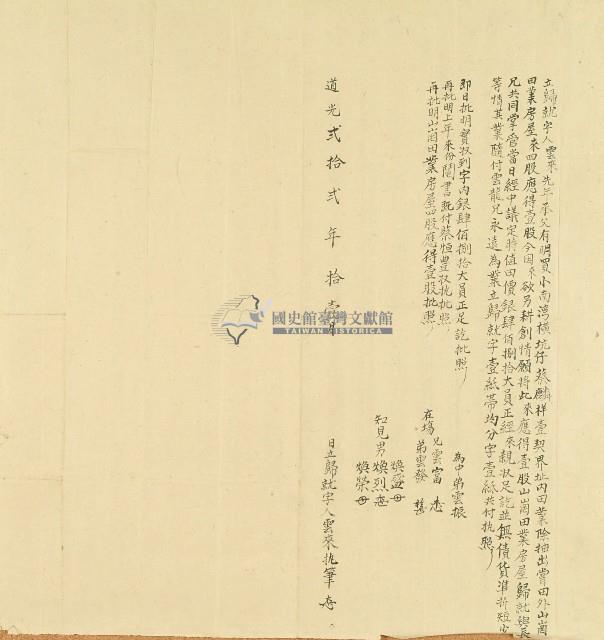 立歸就字人雲來先年承父有明買小南湾橫坑仔蔡麟祥壹契界址內田業除抽出嘗田外山崗
田業房屋來四股應得壹股今因來欲另耕創情願將此來應得壹股山崗田業房屋歸就與長
兄共同掌管當日經中議定時值田價銀肆佰捌拾大員正經來親收足訖並無債貨準折短少
等情其業隨付雲龍兄永遠為業立歸就字壹紙帶均分字壹紙共付执照
即日批明實收到字內銀肆佰捌拾大員正足訖批照
再批明上年來份鬮書䟽付蔡恒豐收执批照
再批明山崗田業房屋四股應得壹股批照
為中弟雲振
在塲兄雲富
弟雲發
煥
知見男煥烈
煥榮
道光弍拾弍年拾壹月
日立歸就字人雲來执筆
國史館臺灣文獻館
TAIWAN HISTORICA